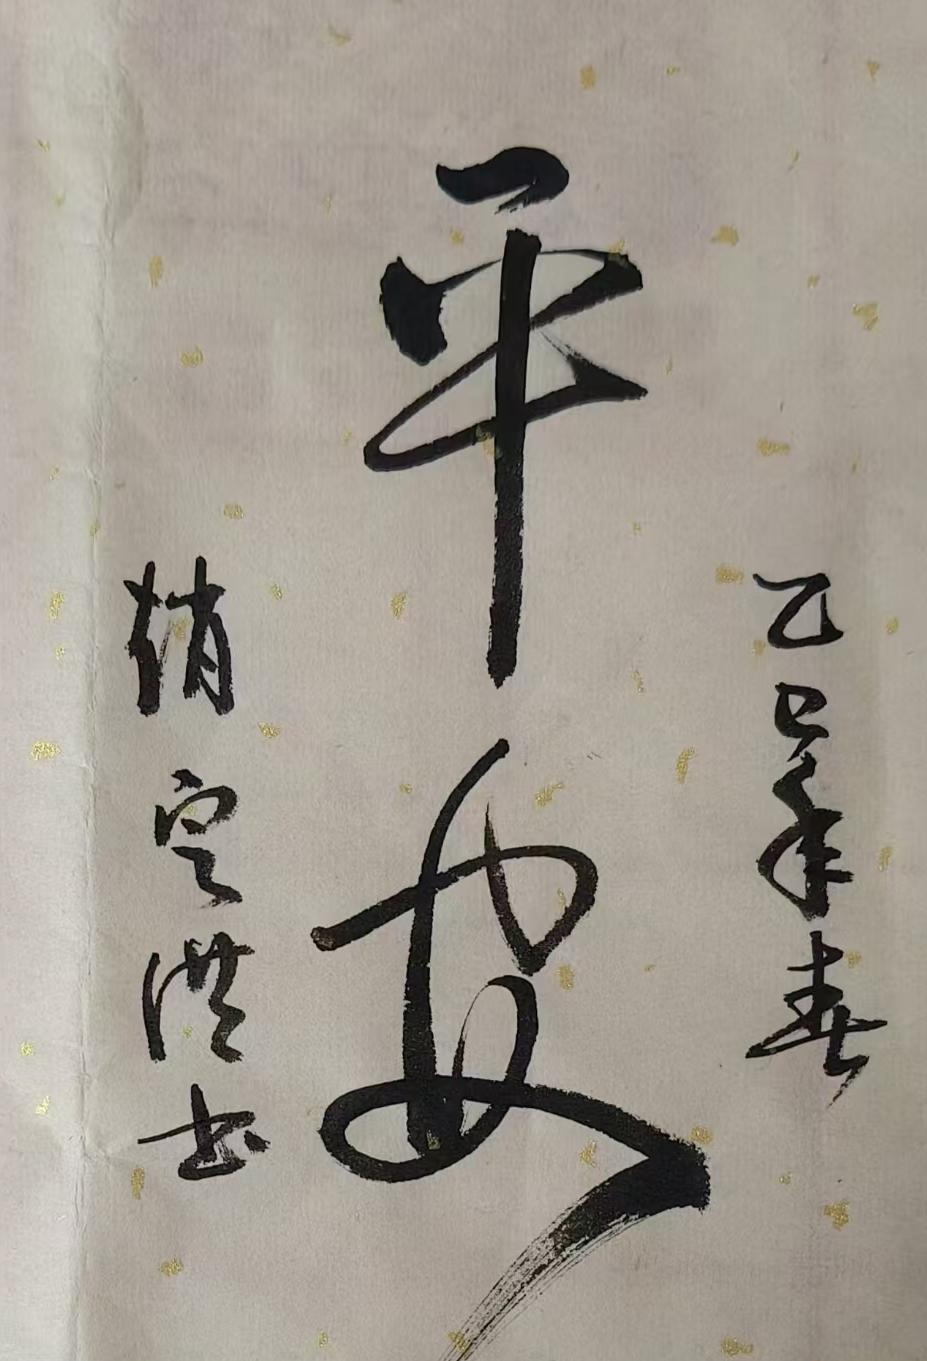 乙巳年春
平安
赵定洪书